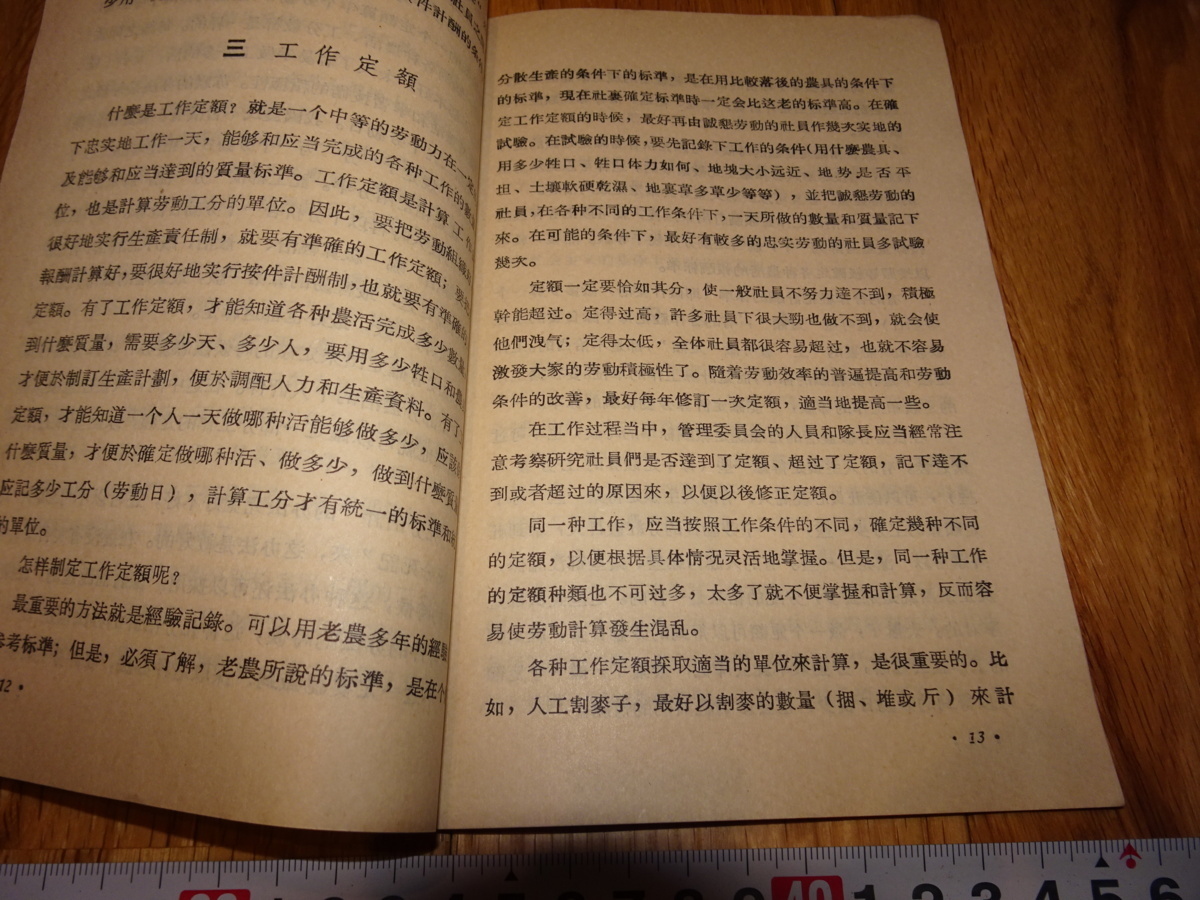 件計酬的条
三 工作定額
什麽是工作定額？就是一个中等的劳動力在一
下忠实地工作一天，能够和应当完成的各种工作的數
及能够和应当達到的質量标准。工作定額是計算工作
位，也是計算劳動工分的單位。因此，要把劳動組織
很好地实行生產責任制，就要有準確的工作定額；要
報酬計算好，要很好地实行按件計酬制，也就要有準確的
定額。有了工作定額，才能知道各种農活完成多少數量
到什麽質量，需要多少天、多少人，要用多少牲口和農
才便於制訂生產計劃，便於調配人力和生產資料。有了
定額，才能知道一个人一天做哪种活能够做多少，应該
什麽質量，才便於確定做哪种活、做多少，做到什麽質
应記多少工分（劳動日），計算工分才有統一的标準和
的單位。
怎样制定工作定額呢？
最重要的方法就是經驗記錄。可以用老農多年的經驗
参考标準；但是，必須了解，老農所說的标準，是在个
12·
分散生產的条件下的标準，是在用比較落後的農具的条件下
的标準，現在社裏確定标準時一定会比这老的标準高。在確
定工作定額的時候，最好再由誠懇劳動的社員作幾次实地的
試驗。在試驗的時候，要先記錄下工作的条件（用什麽農具、
用多少牲口、牲口体力如何、地塊大小远近、地势是否平
坦、土壤軟硬乾濕、地裏草多草少等等），並把誠懇劳動的
社員，在各种不同的工作条件下，一天所做的數量和質量記下
來。在可能的条件下，最好有較多的忠实劳動的社員多試驗
幾次。
定額一定要恰如其分，使一般社員不努力達不到，積極
幹能超过。定得过高，許多社員下很大勁也做不到，就会使
他們洩气；定得太低，全体社員都很容易超过，也就不容易
激發大家的劳動積極性了。隨着劳動效率的普遍提高和劳動
条件的改善，最好每年修訂一次定額，適当地提高一些。
在工作过程当中，管理委員会的人員和隊長应当經常注
意考察研究社員們是否達到了定額、超过了定額，記下達不
到或者超过的原因來，以便以後修正定額。
同一种工作，应当按照工作条件的不同，確定幾种不同
的定額，以便根据具体情况灵活地掌握。但是，同一种工作
的定額种類也不可过多，太多了就不便掌握和計算，反而容
易使劳動計算發生混乱。
各种工作定額採取適当的單位來計算，是很重要的。比
如，人工割麥子，最好以割麥的數量（捆、堆或斤）來計
·13·
40 1 2 3 4 5 6